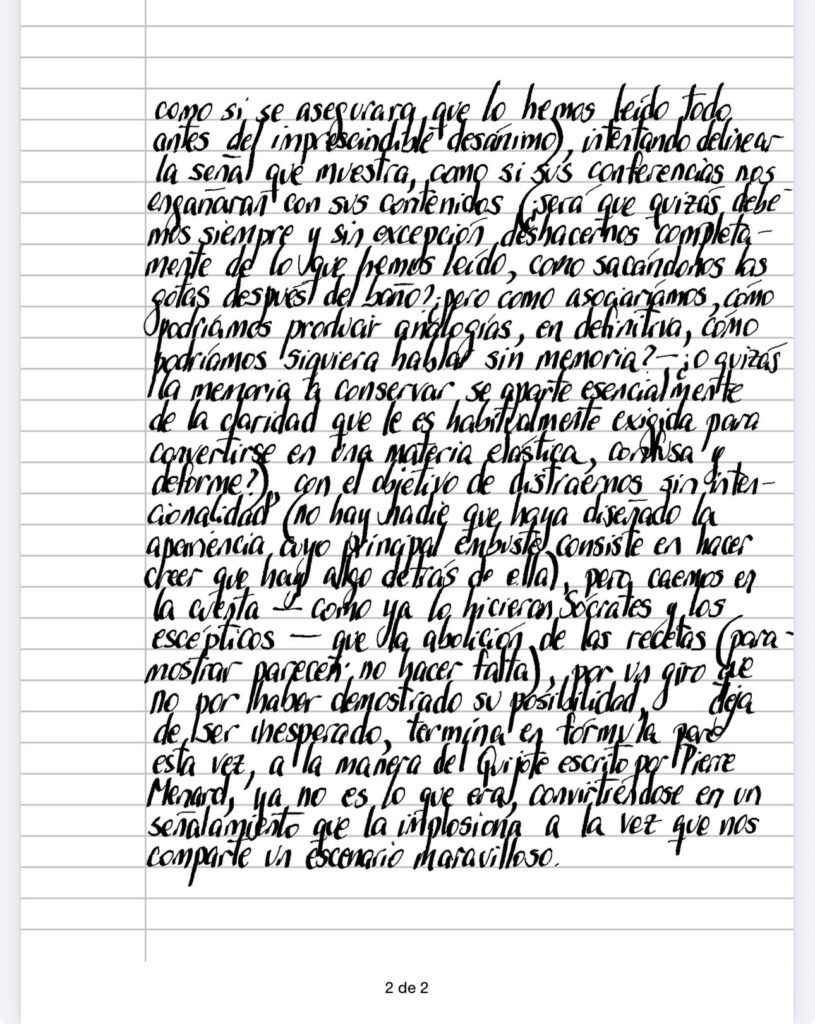 como si se asegurara que lo hemos leído todo
antes del imprescindible desánimo), intentando delinear
la señal que muestra, como si sus conferencias nos
engañaran con sus contenidos (¿será que quizás debe-
mos siempre y sin excepción deshacernos completa-
mente de lo que hemos leído, como sacándonos las
gotas después del baño? ¿pero como asociaríamos, cómo
podríamos producir analogías, en definitiva, cómo
podríamos siquiera hablar sin memoria? — ¿o quizás
la memoria a conservar se aparte esencialmente
de la claridad que le es habitualmente exigida para
convertirse en una materia elástica, confusa y
deforme?), con el objetivo de distraernos sin inten-
cionalidad (no hay nadie que haya diseñado la
apariencia cuyo principal embuste consiste en hacer
creer que hay algo detrás de ella), pero caemos en
la cuenta — como ya lo hicieran Sócrates y los
escépticos — que la abolición de las recetas (para
mostrar parecen no hacer falta), por un giro que
no por haber demostrado su posibilidad, deja
de ser inesperado, termina en fórmula pero
esta vez, a la manera del Quijote escrito por Pierre
Menard, ya no es lo que era, convirtiéndose en un
señalamiento que la implosiona a la vez que nos
comparte un escenario maravilloso.
2 de 2